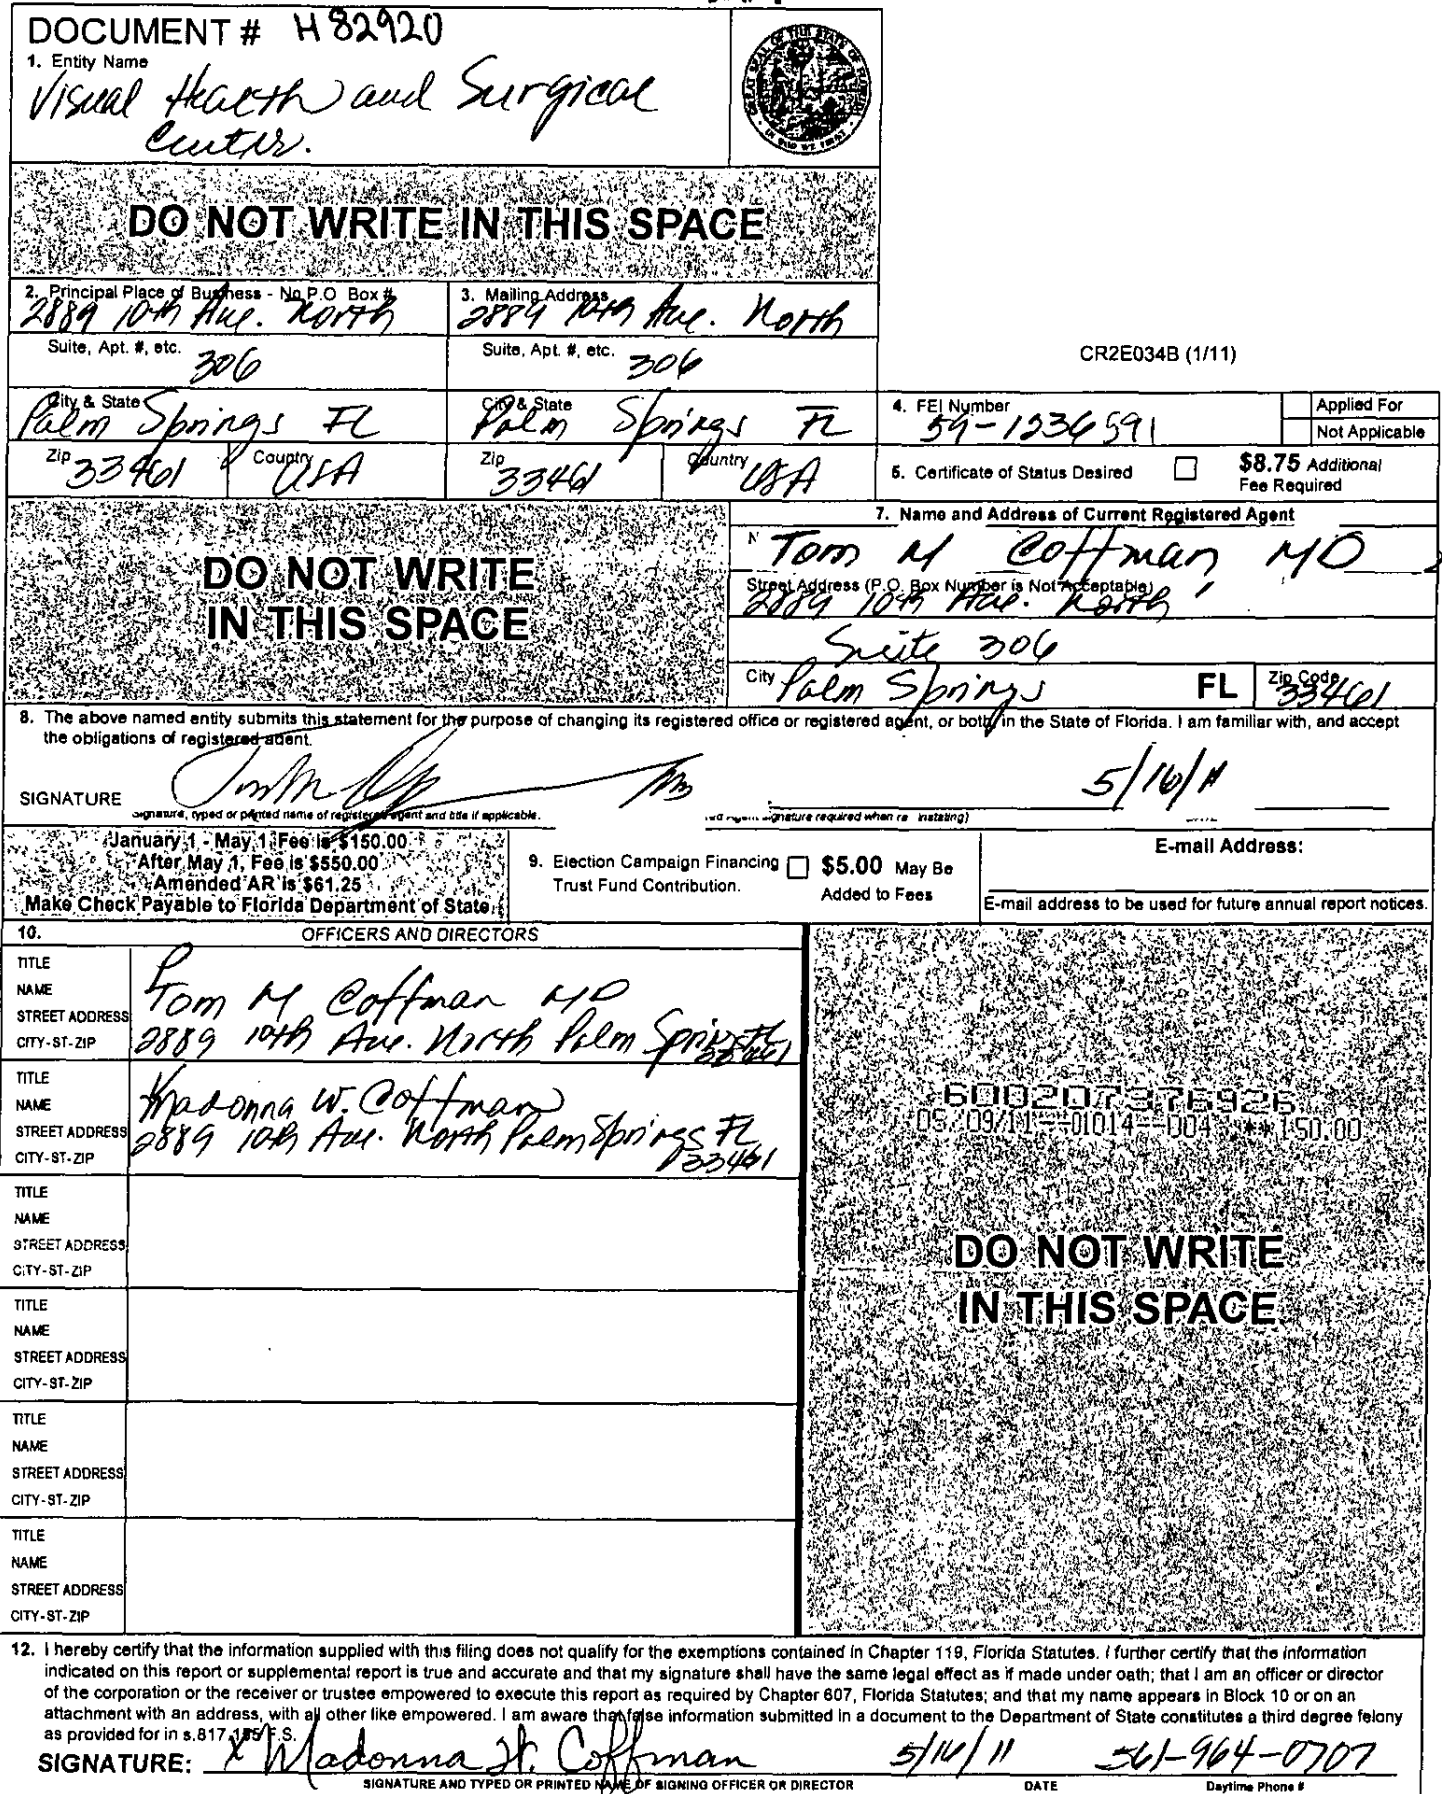 DOCUMENT # H82920
1. Entity Name
Visual Health and Surgical
Center.
DO NOT WRITE IN THIS SPACE
2. Principal Place of Business - No P.O Box #
2889 10th Ave. North
3. Mailing Address
2889 10th Ave. North
Suite, Apt. #, etc.
306
Suite, Apt. #, etc.
306
CR2E034B (1/11)
City & State
Palm Springs FL
City & State
Palm Springs FL
4. FEI Number
59-1236591
Applied For
Not Applicable
Zip
33461
Country
USA
Zip
33461
Country
USA
5. Certificate of Status Desired
$8.75 Additional
Fee Required
7. Name and Address of Current Registered Agent
DO NOT WRITE
IN THIS SPACE
N
Tom M Coffman, MD
Street Address (P.O. Box Number is Not Acceptable)
2889 10th Ave. North
Suite 306
City Palm Springs FL Zip Code 33461
8. The above named entity submits this statement for the purpose of changing its registered office or registered agent, or both, in the State of Florida. I am familiar with, and accept
the obligations of registered agent.
SIGNATURE
5/16/11
Signature, typed or printed name of registered agent and title if applicable.
signature required when re instating)
January 1 - May 1 Fee is $150.00
After May 1, Fee is $550.00
Amended AR is $61.25
Make Check Payable to Florida Department of State
9. Election Campaign Financing
Trust Fund Contribution.
$5.00 May Be
Added to Fees
E-mail Address:
E-mail address to be used for future annual report notices.
10. OFFICERS AND DIRECTORS
TITLE P
NAME Tom M Coffman MD
STREET ADDRESS
CITY-ST-ZIP 2889 10th Ave. North Palm Springs FL
33461
TITLE
NAME Madonna W. Coffman
STREET ADDRESS 2889 10th Ave. North Palm Springs FL
CITY-ST-ZIP 33461
TITLE
NAME
STREET ADDRESS
CITY-ST-ZIP
TITLE
NAME
STREET ADDRESS
CITY-ST-ZIP
TITLE
NAME
STREET ADDRESS
CITY-ST-ZIP
TITLE
NAME
STREET ADDRESS
CITY-ST-ZIP
600207376926
05/09/11--01014--004 **150.00
DO NOT WRITE
IN THIS SPACE
12. I hereby certify that the information supplied with this filing does not qualify for the exemptions contained in Chapter 119, Florida Statutes. I further certify that the information
indicated on this report or supplemental report is true and accurate and that my signature shall have the same legal effect as if made under oath; that I am an officer or director
of the corporation or the receiver or trustee empowered to execute this report as required by Chapter 607, Florida Statutes; and that my name appears in Block 10 or on an
attachment with an address, with all other like empowered. I am aware that false information submitted in a document to the Department of State constitutes a third degree felony
as provided for in s.817.155 F.S.
SIGNATURE: x Madonna W. Coffman 5/16/11 561-964-0707
SIGNATURE AND TYPED OR PRINTED NAME OF SIGNING OFFICER OR DIRECTOR DATE Daytime Phone #